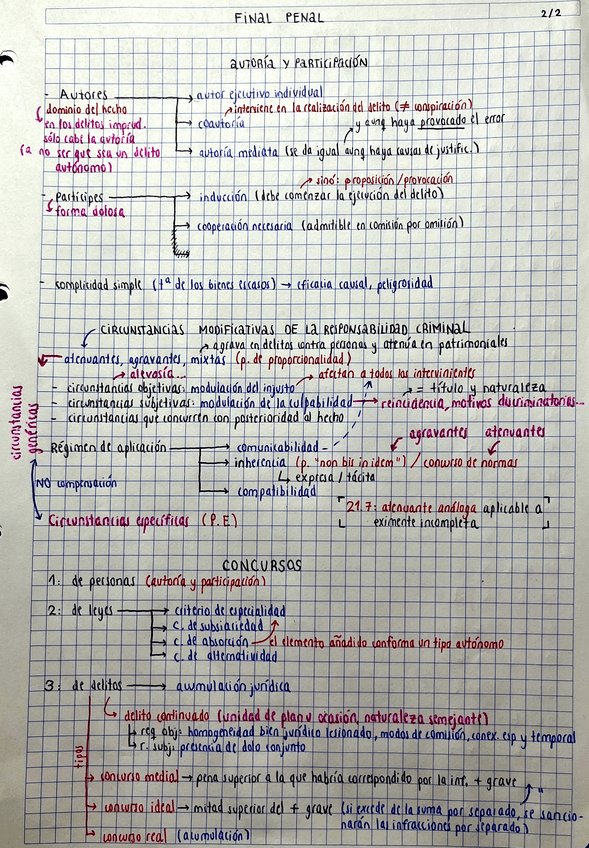 FINAL PENAL
2/2
AUTORÍA Y PARTICIPACIÓN
- Autores → autor ejecutivo individual
dominio del hecho
en los delitos imprud.
sólo cabe la autoría
(a no ser que sea un delito
autónomo)
→ interviene en la realización del delito (≠ conspiración)
→ coautoría
→ y aunq haya provocado el error
→ autoría mediata (se da igual aunq haya causas de justific.)
→ sino: proposición/provocación
- Partícipes → inducción (debe comenzar la ejecución del delito)
forma dolosa
→ cooperación necesaria (admitible en comisión por omisión)
- complicidad simple (tª de los bienes escasos) → eficacia causal, peligrosidad
CIRCUNSTANCIAS MODIFICATIVAS DE LA RESPONSABILIDAD CRIMINAL
→ agrava en delitos contra personas y atenúa en patrimoniales
atenuantes, agravantes, mixtas (p. de proporcionalidad)
→ alevosía... → afectan a todos los intervinientes
- circunstancias objetivas: modulación del injusto
→ = título y naturaleza
- circunstancias subjetivas: modulación de la culpabilidad → reincidencia, motivos discriminatorios...
- circunstancias que concurren con posterioridad al hecho
circunstancias
genéricas
agravantes atenuantes
Régimen de aplicación → comunicabilidad -
→ inherencia (p. "non bis in idem") / concurso de normas
↳ expresa / tácita
→ compatibilidad
NO compensación
21.7: atenuante análoga aplicable a
eximente incompleta
Circunstancias específicas (P.E)
CONCURSOS
1: de personas (autoría y participación)
2: de leyes → criterio de especialidad
→ c. de subsiariedad
→ c. de absorción → el elemento añadido conforma un tipo autónomo
→ c. de alternatividad
3: de delitos → acumulación jurídica
↳ delito continuado (unidad de plan u ocasión, naturaleza semejante)
↳ req obj: homogeneidad bien jurídico lesionado, modos de comisión, conex. esp y temporal
↳ r. subj: presencia de dolo conjunto
tipos
→ concurso medial → pena superior a la que habría correspondido por la inf. + grave
"
→ concurso ideal → mitad superior del + grave (si excede de la suma por separado, se sancio-
narán las infracciones por separado)
→ concurso real (acumulación)